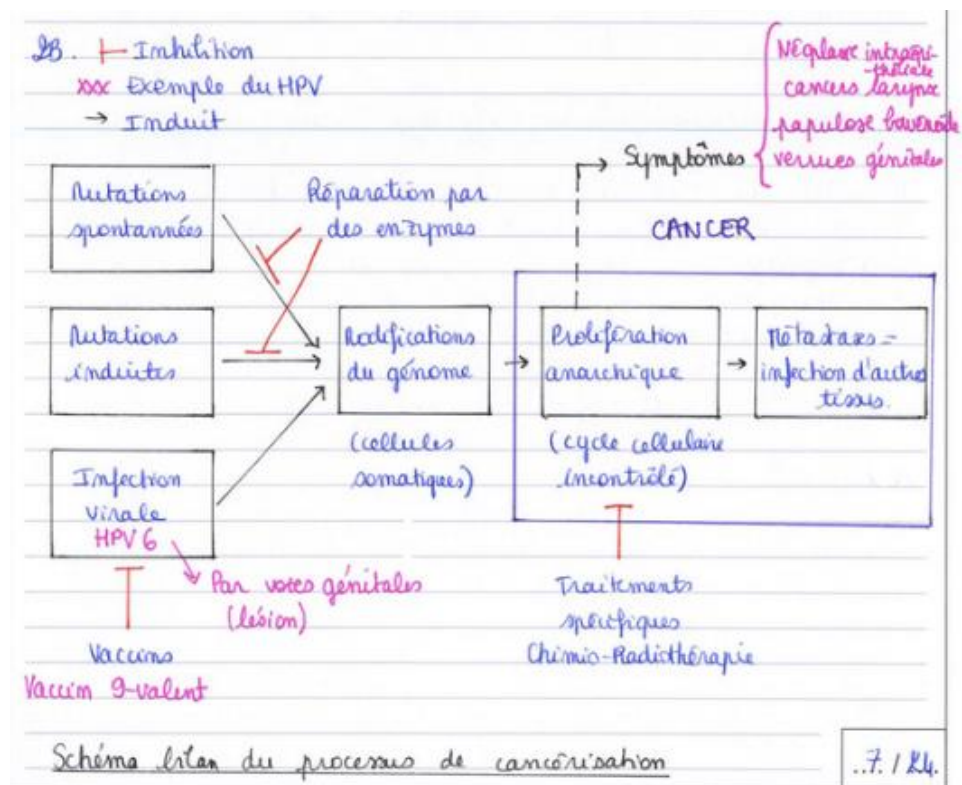 2B. Inhibition
xxx Exemple du HPV
→ Induit
Néoplasie intraépi-
-théliale
cancers larynx
papulose bowenoïde
verrues génitales
Symptômes
Mutations
spontannées
Réparation par
des enzymes
CANCER
Mutations
induites
Modifications
du génome
(cellules
somatiques)
Prolifération
anarchique
(cycle cellulaire
incontrôlé)
Métastases =
infection d'autres
tissus.
Infection
virale
HPV 6
Par voies génitales
(lésion)
Vaccins
Vaccin 9-valent
Traitements
spécifiques
Chimio-Radiothérapie
Schéma bilan du processus de cancérisation
..7. / 24.